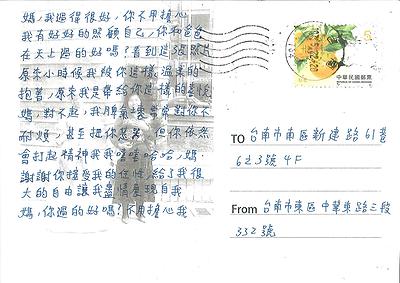 媽,我過得很好,你不用擔心
我有好好的照顧自己,你和爸爸
在天上過的好嗎?看到這張照片
原來小時候我被你這樣溫柔的
抱著,原來我是帶給你這樣的喜悅
媽,對不起,我脾氣壞常常對你不
耐煩,甚至把你惹哭,但你依然
會打起精神我嘻嘻哈哈,媽.
謝謝你接受我的任性,給了我很
大的自由讓我盡情展現自我
媽,你過的好嗎?不用擔心我
5
中華民國郵票
REPUBLIC OF CHINA (TAIWAN)
TO 台南市南區新建路61巷
623號4F
From 台南市東區中華東路三段
332號